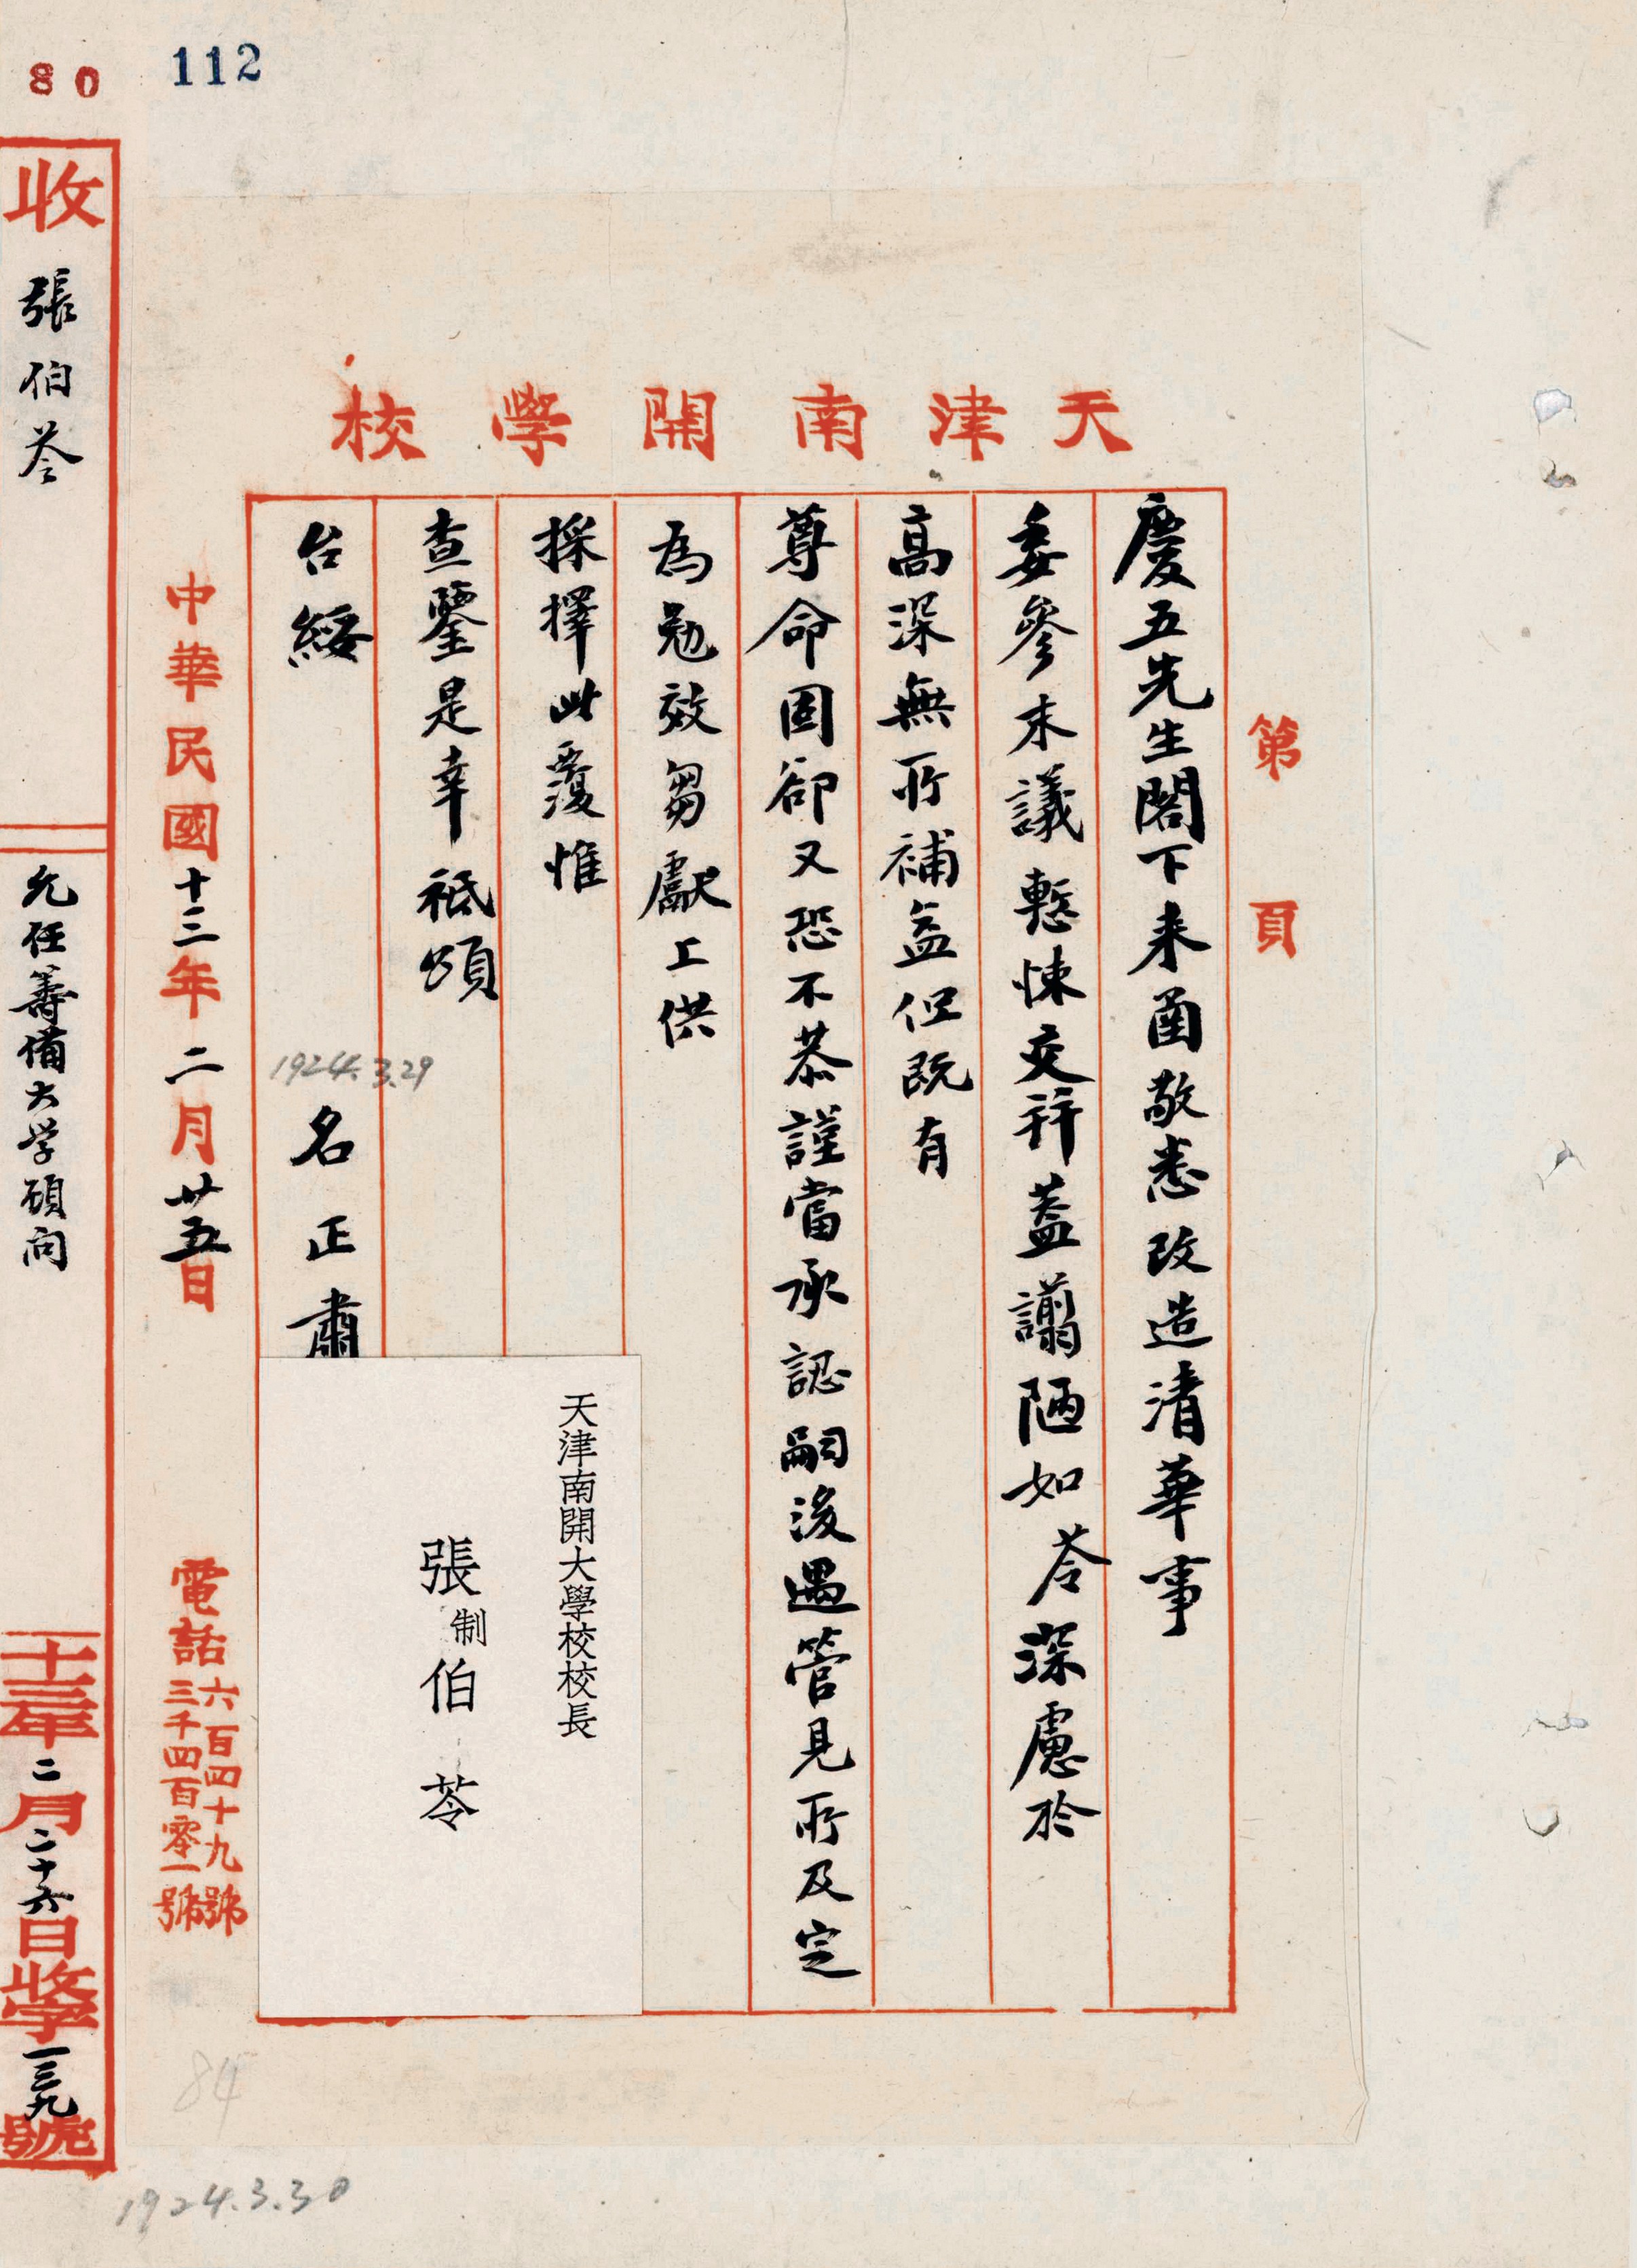 112
80
天津南開學校
第 頁
慶五先生閣下来函敬悉改造清華事
委參末議慙悚交并蓋謭陋如苓深慮於
高深無所補益但既有
尊命固卻又恐不恭謹當承認嗣後遇管見所及定
為勉效芻獻上供
採擇此覆惟
查鑒是幸祗頌
台綏
1924.3.29
名正肅
天津南開大學校校長
張制伯苓
中華民國十三年二月廿五日
電話六百四十九號
三千四百零一號
收
張伯苓
允任籌備大学顧问
十三年二月二十六日收學一三九號
84
1924.3.30